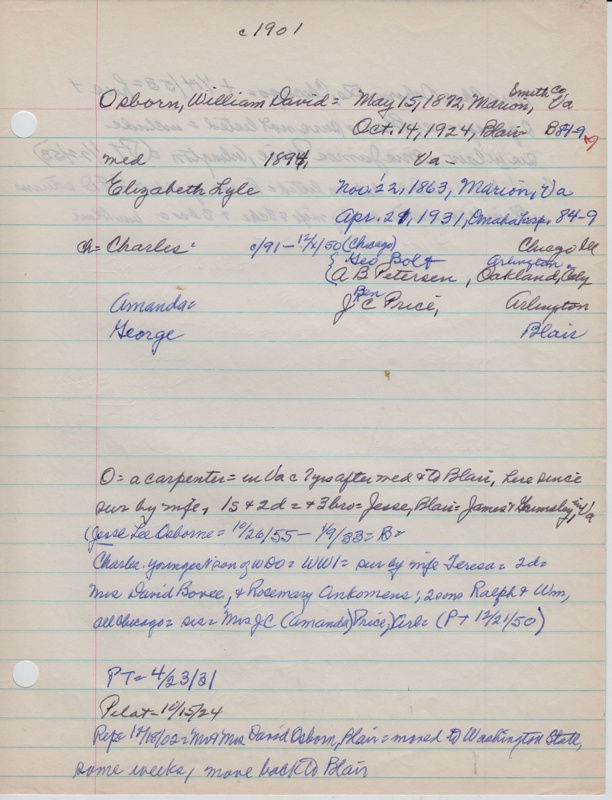 c1901
Smith Co
Osborn, William David = May 15, 1872, Marion, Va
Oct. 14, 1924, Blair B84-9 9
med 1894, Va -
Elizabeth Lyle Nov. 22, 1863, Marion, Va
Apr. 21, 1931, Omaha hosp. 84-9
ch = Charles = c/91 - 12/ /50 (Chicago) Chicago Ill
Geo Bolt Arlington =
A B. Petersen, Oakland,
Amanda = Ben J C Price, Arlington
George Blair
O = a carpenter = in Va c 7 yrs after med & to Blair, here since
sur by wife, 1s + 2d = + 3 bro = Jesse, Blair = James & Grumsley, in Va
(Jesse Lee Osborne = 10/26/55 - 1/9/33 = B =
Charles. youngest son of WDO = WW1 = sur by wife Teresa = 2d =
Mrs David Bovee, & Rosemary Ankomens; 2 sons Ralph & Wm,
all Chicago = sis = Mrs J C (Amanda) Price, Arl = (PT 12/21/50)
PT = 4/23/31
Pilot = 10/15/24
Rep = 12/18/02 = Mr & Mrs David Osborn, Blair = moved to Washington State,
some weeks, move back to Blair